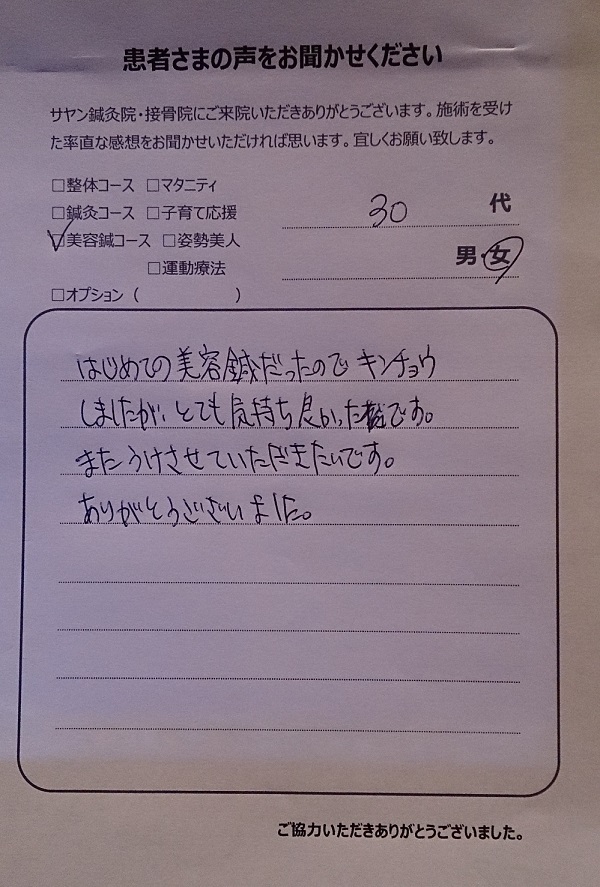 患者さまの声をお聞かせください
サヤン鍼灸院・接骨院にご来院いただきありがとうございます。施術を受け
た率直な感想をお聞かせいただければ思います。宜しくお願い致します。
□整体コース □マタニティ
□鍼灸コース □子育て応援
30 代
☑美容鍼コース □姿勢美人
男・女
□運動療法
□オプション（ ）
はじめての美容鍼だったので キンチョウ
しましたが、とても気持ち良かったです。
またうけさせていただきたいです。
ありがとうございました。
ご協力いただきありがとうございました。